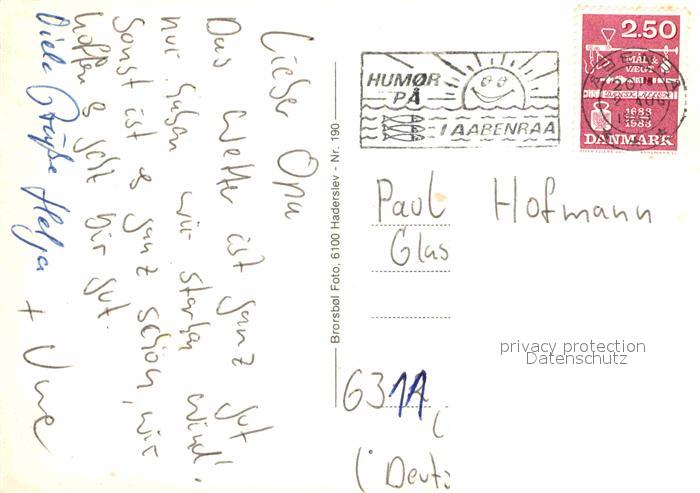 Lieber Opa
Das Wetter ist ganz gut
nur haben wir starken Wind.
Sonst ist es ganz schön, wir
hoffen es geht Dir gut.
Viele Grüße Helja + Uwe
Brorsbøl Foto, 6100 Haderslev - Nr. 190
HUMØR
PÅ
I AABENRAA
2.50
MÅL &
VÆGT
1683
1983
DANMARK
Paul Hofmann
Glas
6311
(Deut
privacy protection
Datenschutz